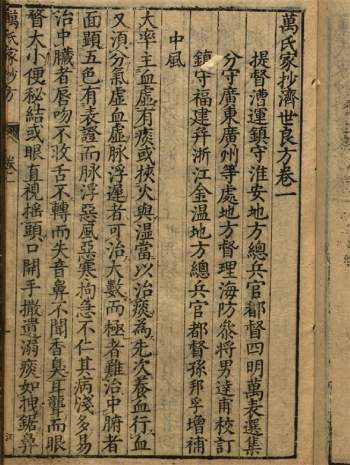 萬氏家抄濟世良方卷一
提督漕運鎮守淮安地方總兵官都督四明萬表選集
分守廣東廣州等處地方督理海防叅將男達甫校訂
鎮守福建并浙江金温地方總兵官都督孫邦孚增補
中風
大率主血虛有痰或挾火與濕當以治痰為先次養血行血
又須分氣虛血虛脉浮遲者可治大數而極者難治中腑者
面顯五色有表證而脉浮惡風惡寒拘急不仁其病淺多易
治中臟者唇吻不收舌不轉而失音鼻不聞香臭耳聾而眼
瞀大小便秘結或眼直視摇頭口開手撒遺溺痰如拽鋸鼻
萬氏家抄方
卷一